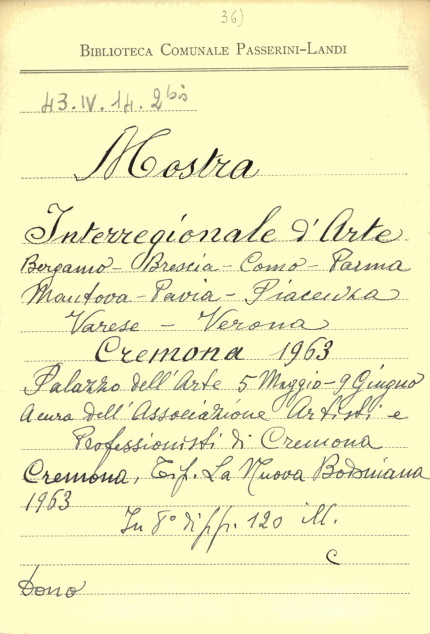 36)
BIBLIOTECA COMUNALE PASSERINI-LANDI
43.IV.14.2bis
Mostra
Interregionale d'Arte
Bergamo - Brescia - Como - Parma
Mantova - Pavia - Piacenza
Varese - Verona
Cremona 1963
Palazzo dell'Arte 5 Maggio - 9 Giugno
A cura dell'Associazione Artisti e
Professionisti di Cremona
Cremona, Tip. La Nuova Bodoniana
1963
In 8° di pp. 120 ill.
C
Dono